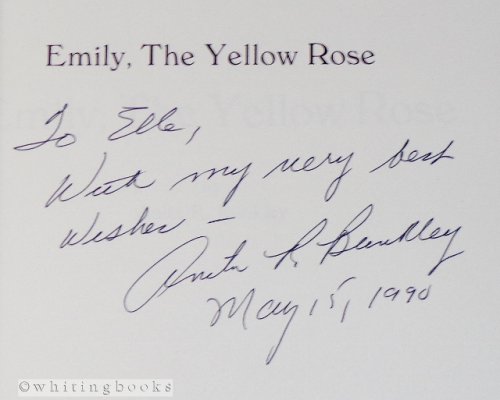 Emily, The Yellow Rose
To Elle,
With my very best
Wishes –
Anita R. Bunkley
May 15, 1990
©whitingbooks